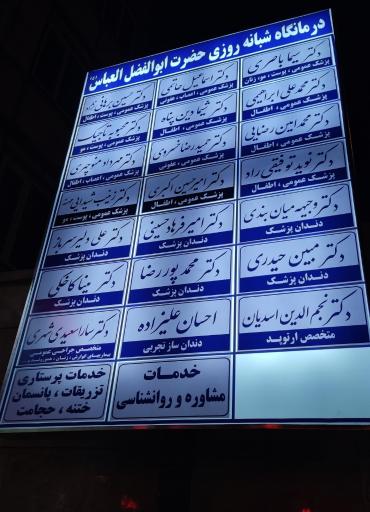 درمانگاه شبانه روزی حضرت ابوالفضل العباس (ع)
دکتر سیما باصری
پزشک عمومی ، پوست ، مو، زنان
دکتر اسماعیل حاتمی
پزشک عمومی ، اعصاب ، عفونی
دکتر حسین برهانی نژاد
پزشک عمومی ، پوست ، اطفال
دکتر محمد علی ابراهیمی
پزشک عمومی ، اطفال
دکتر شیما دین پناه
پزشک عمومی ، اطفال
دکتر محبوبه تاجیک
پزشک عمومی ، پوست ، مو
دکتر محمد امین رضایی
پزشک عمومی ، اطفال
دکتر حمید رضا خسروی
پزشک عمومی ، عفونی
دکتر مهرداد منوچهری
پزشک عمومی ، اعصاب ، اطفال
دکتر نوید توفیقی راد
پزشک عمومی ، اطفال
دکتر امیرحسین اکبری
پزشک عمومی ، اطفال
دکتر
پزشک عمومی ، پوست ، مو
دکتر وجیهه میان بندی
دندان پزشک
دکتر امیر فرهاد حسینی
دندان پزشک
دکتر علی دلیر سرباز
دندان پزشک
دکتر مبین حیدری
دندان پزشک
دکتر محمد پوررضا
دندان پزشک
دکتر مینا کاخکی
دندان پزشک
دکتر نجم الدین اسدیان
متخصص ارتوپد
احسان علیزاده
دندان ساز تجربی
دکتر سارا سعیدی
متخصص جراحی عمومی
خدمات
مشاوره و روانشناسی
خدمات پرستاری
تزریقات ، پانسمان
ختنه ، حجامت